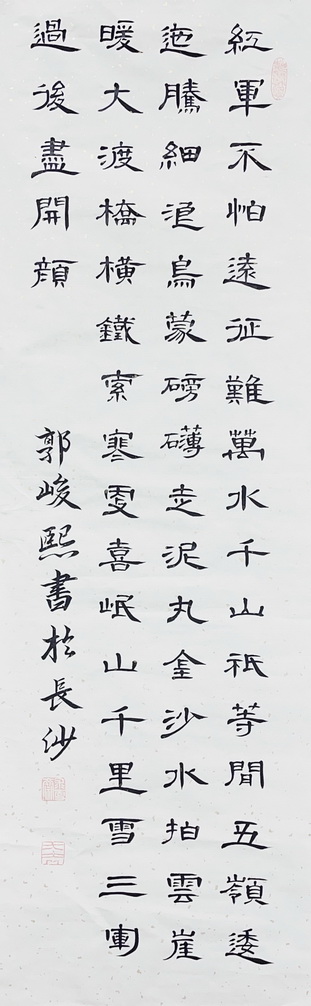 紅軍不怕遠征難萬水千山祇等間五嶺逶
迤騰細浪烏蒙磅礴走泥丸金沙水拍雲崖
暖大渡橋橫鐵索寒更喜岷山千里雪三軍
過後盡開顏
郭峻熙書於長沙